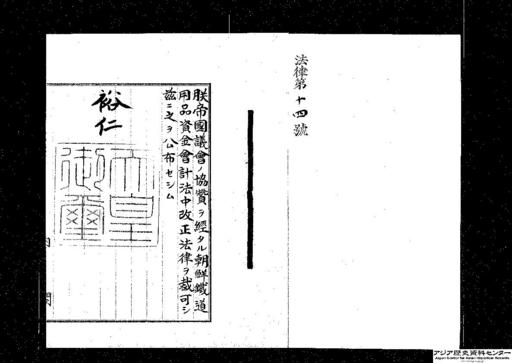 法律第十四號
朕帝國議會ノ協贊ヲ經タル朝鮮鐵道
用品資金會計法中改正法律ヲ裁可シ
茲ニ之ヲ公布セシム
裕仁
天皇
御璽
内
閣
アジア歴史資料センター
Japan Center for Asian Historical Records